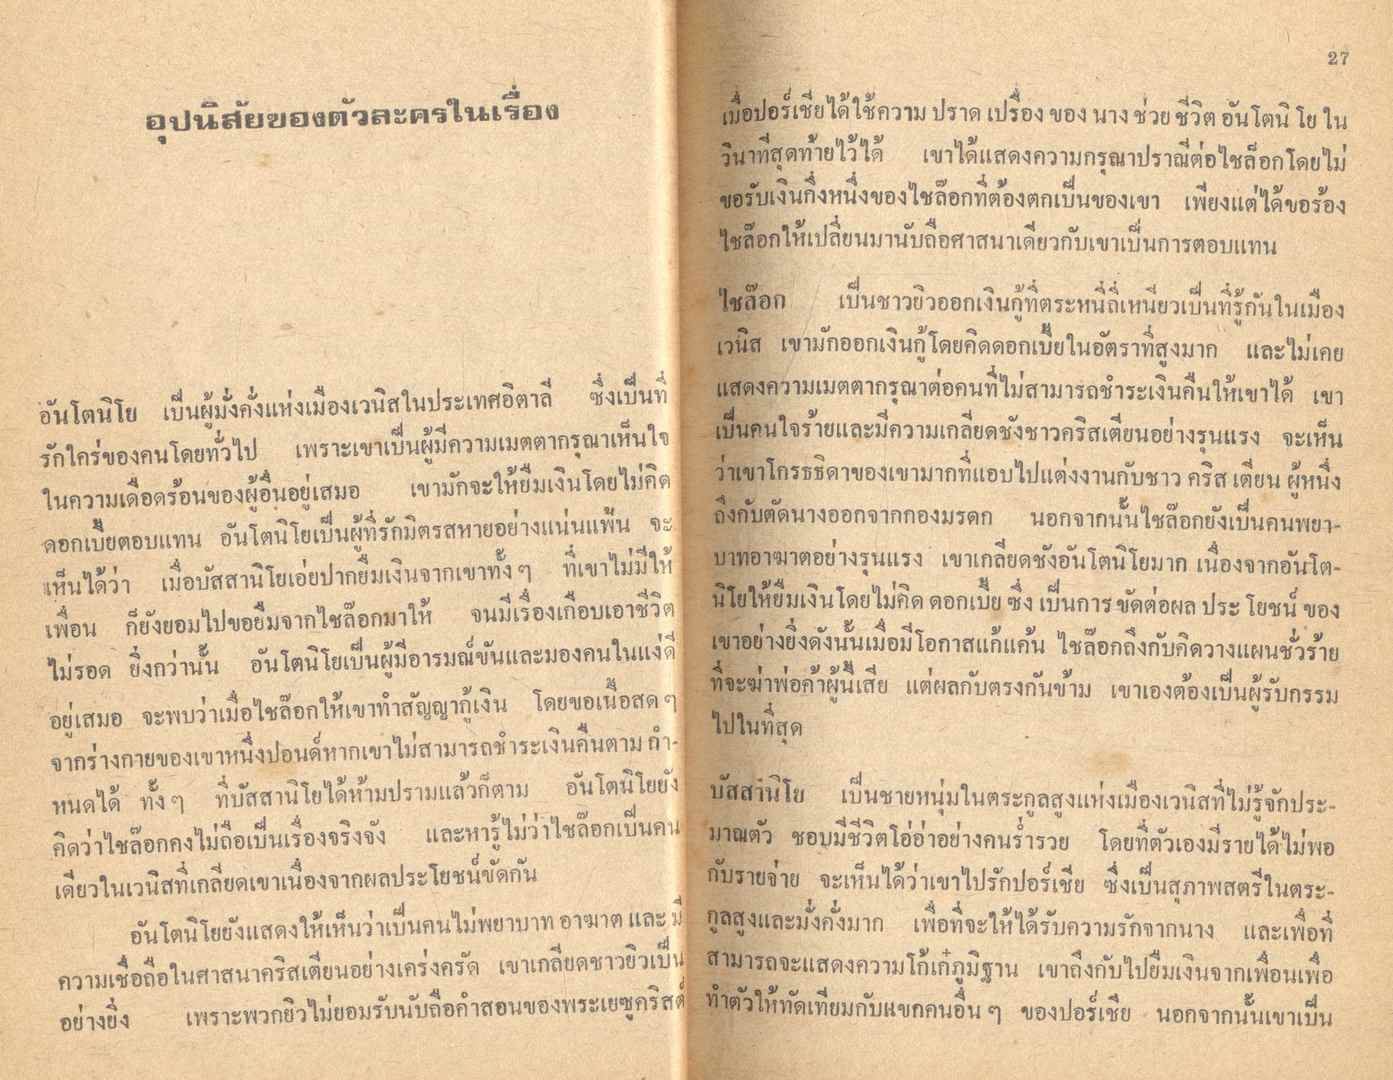 อุปนิสัยของตัวละครในเรื่อง
อันโตนิโย เป็นผู้มั่งคั่งแห่งเมืองเวนิสในประเทศอิตาลี ซึ่งเป็นที่
รักใคร่ของคนโดยทั่วไป เพราะเขาเป็นผู้มีความเมตตากรุณาเห็นใจ
ในความเดือดร้อนของผู้อื่นอยู่เสมอ เขามักจะให้ยืมเงินโดยไม่คิด
ดอกเบี้ยตอบแทน อันโตนิโยเป็นผู้ที่รักมิตรสหายอย่างแน่นแฟ้น จะ
เห็นได้ว่า เมื่อบัสสานิโยเอ่ยปากยืมเงินจากเขาทั้งๆ ที่เขาไม่มีให้
เพื่อน ก็ยังยอมไปขอยืมจากไชล๊อกมาให้ จนมีเรื่องเกือบเอาชีวิต
ไม่รอด ยิ่งกว่านั้น อันโตนิโยเป็นผู้มีอารมณ์ขันและมองคนในแง่ดี
อยู่เสมอ จะพบว่าเมื่อไชล๊อกให้เขาทำสัญญากู้เงิน โดยขอเนื้อสดๆ
จากร่างกายของเขาหนึ่งปอนด์หากเขาไม่สามารถชำระเงินคืนตาม กำ-
หนดได้ ทั้งๆ ที่บัสสานิโยได้ห้ามปรามแล้วก็ตาม อันโตนิโยยัง
คิดว่าไชล๊อกคงไม่ถือเป็นเรื่องจริงจัง และหารู้ไม่ว่าไชล๊อกเป็นคน
เดียวในเวนิสที่เกลียดเขาเนื่องจากผลประโยชน์ขัดกัน
อันโตนิโยยังแสดงให้เห็นว่าเป็นคนไม่พยาบาท อาฆาต และ มี
ความเชื่อถือในศาสนาคริสเตียนอย่างเคร่งครัด เขาเกลียดชาวยิวเป็น
อย่างยิ่ง เพราะพวกยิวไม่ยอมรับนับถือคำสอนของพระเยซูคริสต์
27
เมื่อปอร์เชียได้ใช้ความ ปราด เปรื่อง ของ นาง ช่วย ชีวิต อันโตนิ โย ใน
วินาทีสุดท้ายไว้ได้ เขาได้แสดงความกรุณาปราณีต่อไชล็อกโดยไม่
ขอรับเงินกึ่งหนึ่งของไชล๊อกที่ต้องตกเป็นของเขา เพียงแต่ได้ขอร้อง
ไชล๊อกให้เปลี่ยนมานับถือศาสนาเดียวกับเขาเป็นการตอบแทน
ไชล๊อก เป็นชาวยิวออกเงินกู้ที่ตระหนี่ถี่เหนียวเป็นที่รู้กันในเมือง
เวนิส เขามักออกเงินกู้โดยคิดดอกเบี้ยในอัตราที่สูงมาก และไม่เคย
แสดงความเมตตากรุณาต่อคนที่ไม่สามารถชำระเงินคืนให้เขาได้ เขา
เป็นคนใจร้ายและมีความเกลียดชังชาวคริสเตียนอย่างรุนแรง จะเห็น
ว่าเขาโกรธธิดาของเขามากที่แอบไปแต่งงานกับชาว คริส เตียน ผู้หนึ่ง
ถึงกับตัดนางออกจากกองมรดก นอกจากนั้นไชล๊อกยังเป็นคนพยา-
บาทอาฆาตอย่างรุนแรง เขาเกลียดชังอันโตนิโยมาก เนื่องจากอันโต-
นิโยให้ยืมเงินโดยไม่คิด ดอกเบี้ย ซึ่ง เป็นการ ขัดต่อผล ประ โยชน์ ของ
เขาอย่างยิ่งดังนั้นเมื่อมีโอกาสแก้แค้น ไชล๊อกถึงกับคิดวางแผนชั่วร้าย
ที่จะฆ่าพ่อค้าผู้นี้เสีย แต่ผลกับตรงกันข้าม เขาเองต้องเป็นผู้รับกรรม
ไปในที่สุด
บัสสานิโย เป็นชายหนุ่มในตระกูลสูงแห่งเมืองเวนิสที่ไม่รู้จักประ-
มาณตัว ชอบมีชีวิตโอ่อ่าอย่างคนร่ำรวย โดยที่ตัวเองมีรายได้ไม่พอ
กับรายจ่าย จะเห็นได้ว่าเขาไปรักปอร์เชีย ซึ่งเป็นสุภาพสตรีในตระ-
กูลสูงและมั่งคั่งมาก เพื่อที่จะให้ได้รับความรักจากนาง และเพื่อที่
สามารถจะแสดงความโก้เก๋ภูมิฐาน เขาถึงกับไปยืมเงินจากเพื่อนเพื่อ
ทำตัวให้ทัดเทียมกับแขกคนอื่นๆ ของปอร์เชีย นอกจากนั้นเขาเป็น